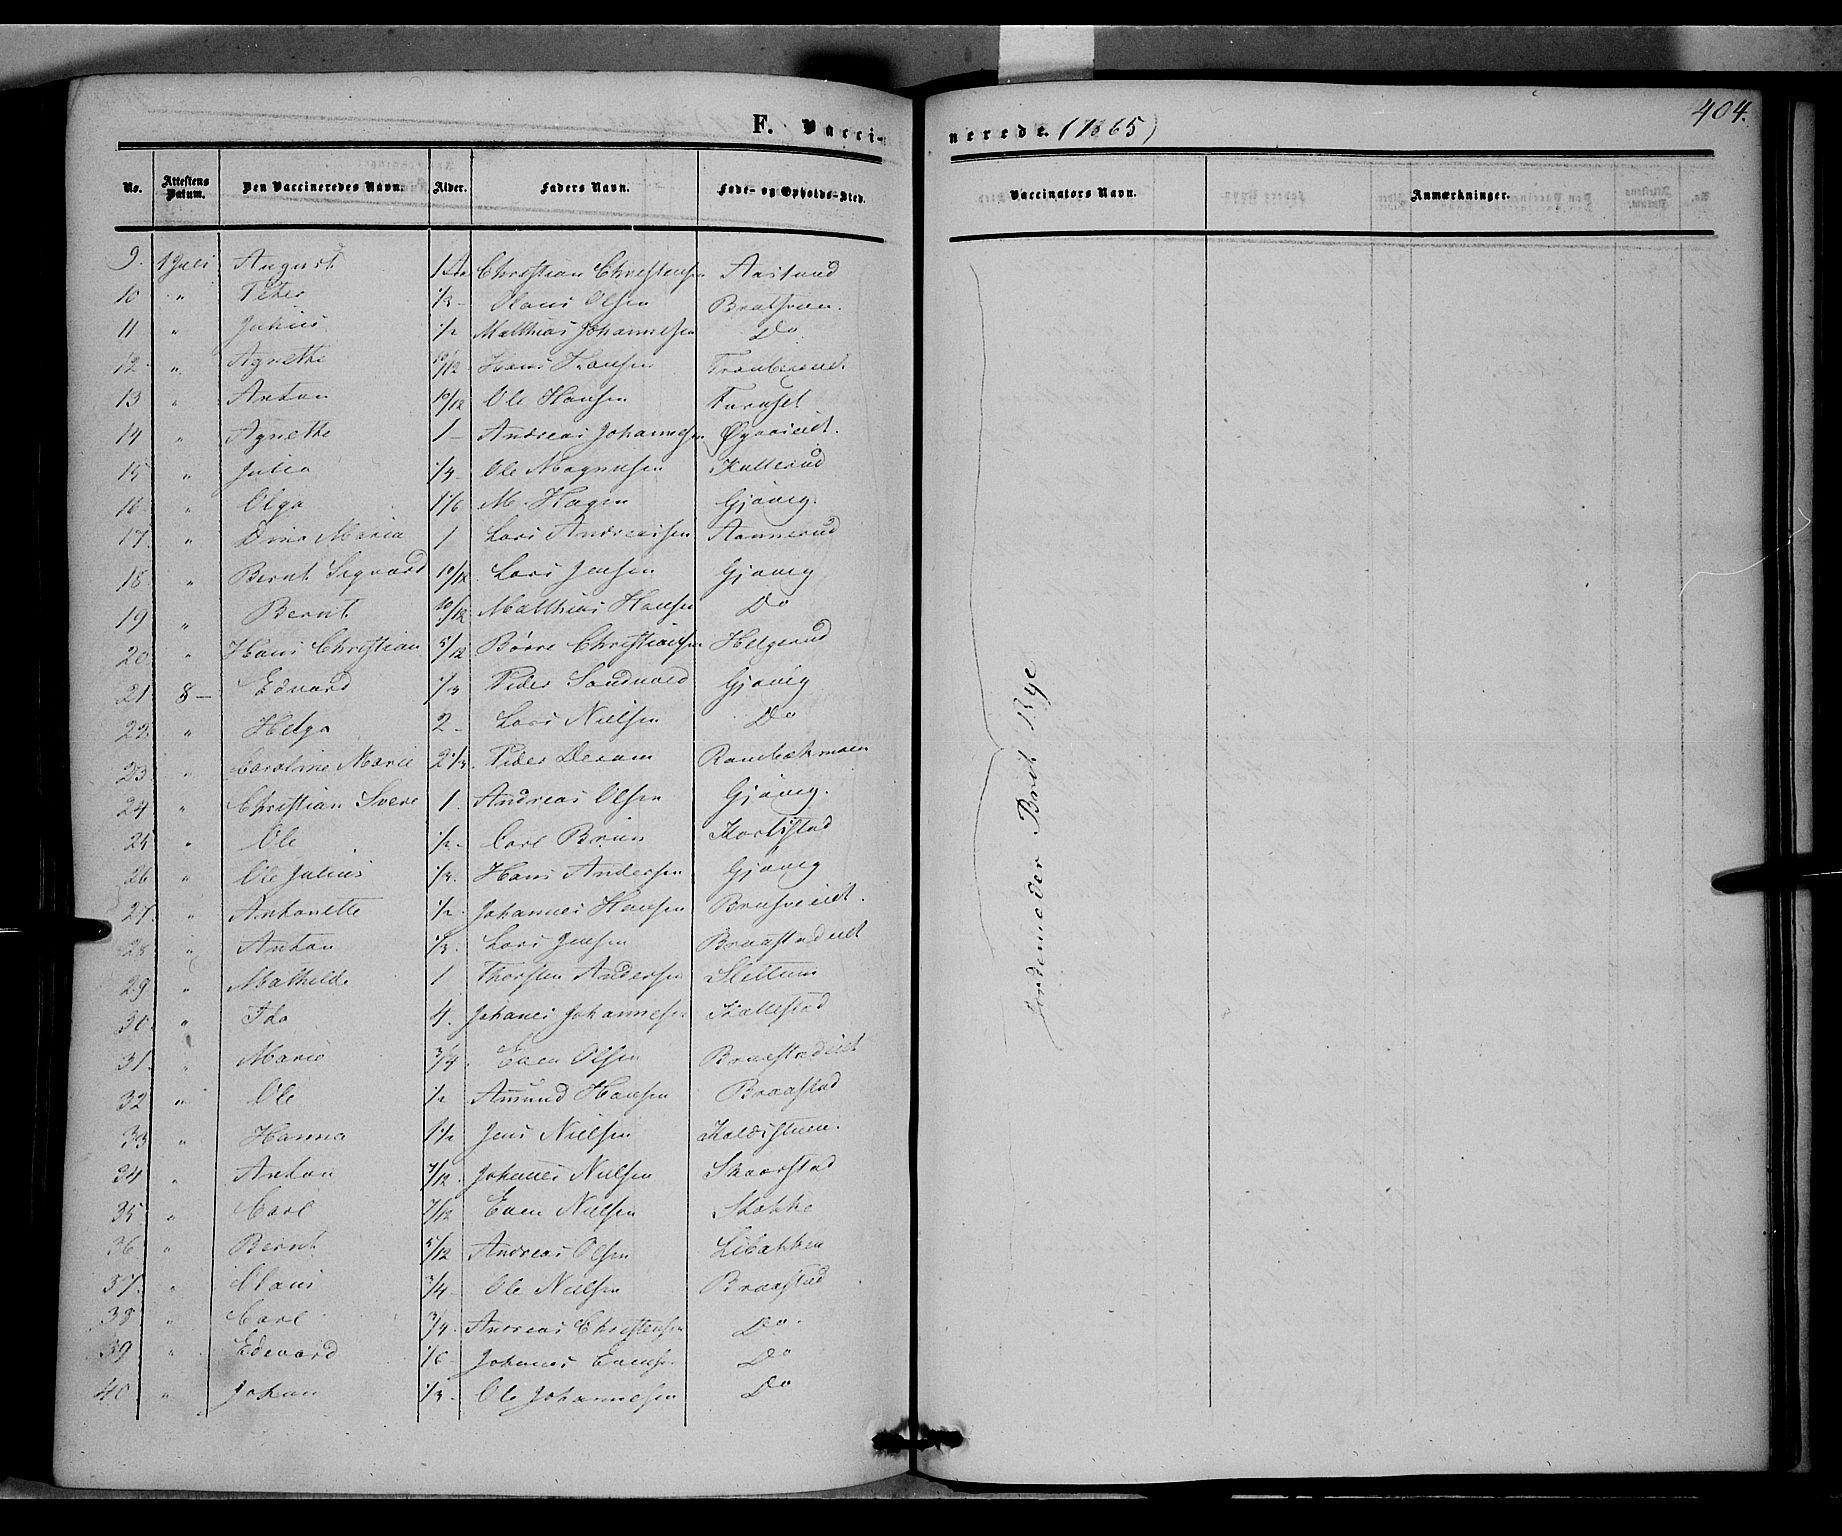 404.
F. Vacci- nerede. (1865)
No. Attestens Datum. Den Vaccineredes Navn. Alder. Faders Navn. Føde- og Opholds-Sted. Vaccinators Navn. Anmærkninger.
9. 1 Juli August Christian Christensen Aaslund
10 " Peter 1/3 - Olaus Olsen
11 " Julius 1/2 Matthias Johannesen Do
12 " Agnethe 10/12 Hans Hansen
13 " Anton 10/12 Ole Hansen Furuset
14 " Agnethe 1 - Andreas Johannesen
15 " Julia 1/3 - Ole Magnusen Kulterud
16 " Olga 1 1/6 M. Hagen Gjøvig.
17. " Dina Maria 1 Lars Andreassen
18 " Bernt Sigvard 10/12. Lars Jensen Gjøvig
19 " Bernt 10/12 Matthias Hansen Do
20 " Hans Christian 5/12 Børre Christiansen Helgerud
21. 8 - Edvard 1/3 Peder Sandvold Gjøvig
22. " Helga 2 - Lars Nielsen Do
23 " Caroline Marie 2 1/3. Peder Rambækmoen
24 " Christian Svere 1. Andreas Olsen Gjøvig.
25 " Ole 1/2 - Carl Brun
26 " Ole Julius 1/3. Hans Andersen Gjøvig
27. " Antonette 1/2 - Johannes Hansen
28 " Anton 1/3. Lars Jensen Braastadeidt
29 " Mathilde 1 Thorsten Andersen Slettum
30. " Ida 4. Johanes Johannesen Kallestad
31. " Marie 3/4 - Even Olsen Braastadeidt
32 " Ole 1/2 Amund Hansen Braastad
33 " Hanna 1 1/2 Jens Nielsen Kaldistuen.
34 " Anton 7/12 Johanes Nielsen Skaarstad
35 " Carl 7/12 Even Nielsen Stokke
36. " Bernt 5/12 Andreas Olsen Libakken
37. " Claus 3/4 - Ole Nielsen Braastad
38 " Carl 3/4 - Andreas Christensen Do.
39 " Edevard 1/6 - Johanes Evensen Do
40 " Johan 1/3 - Ole Johannesen Do
Jordemoder Brit Rye